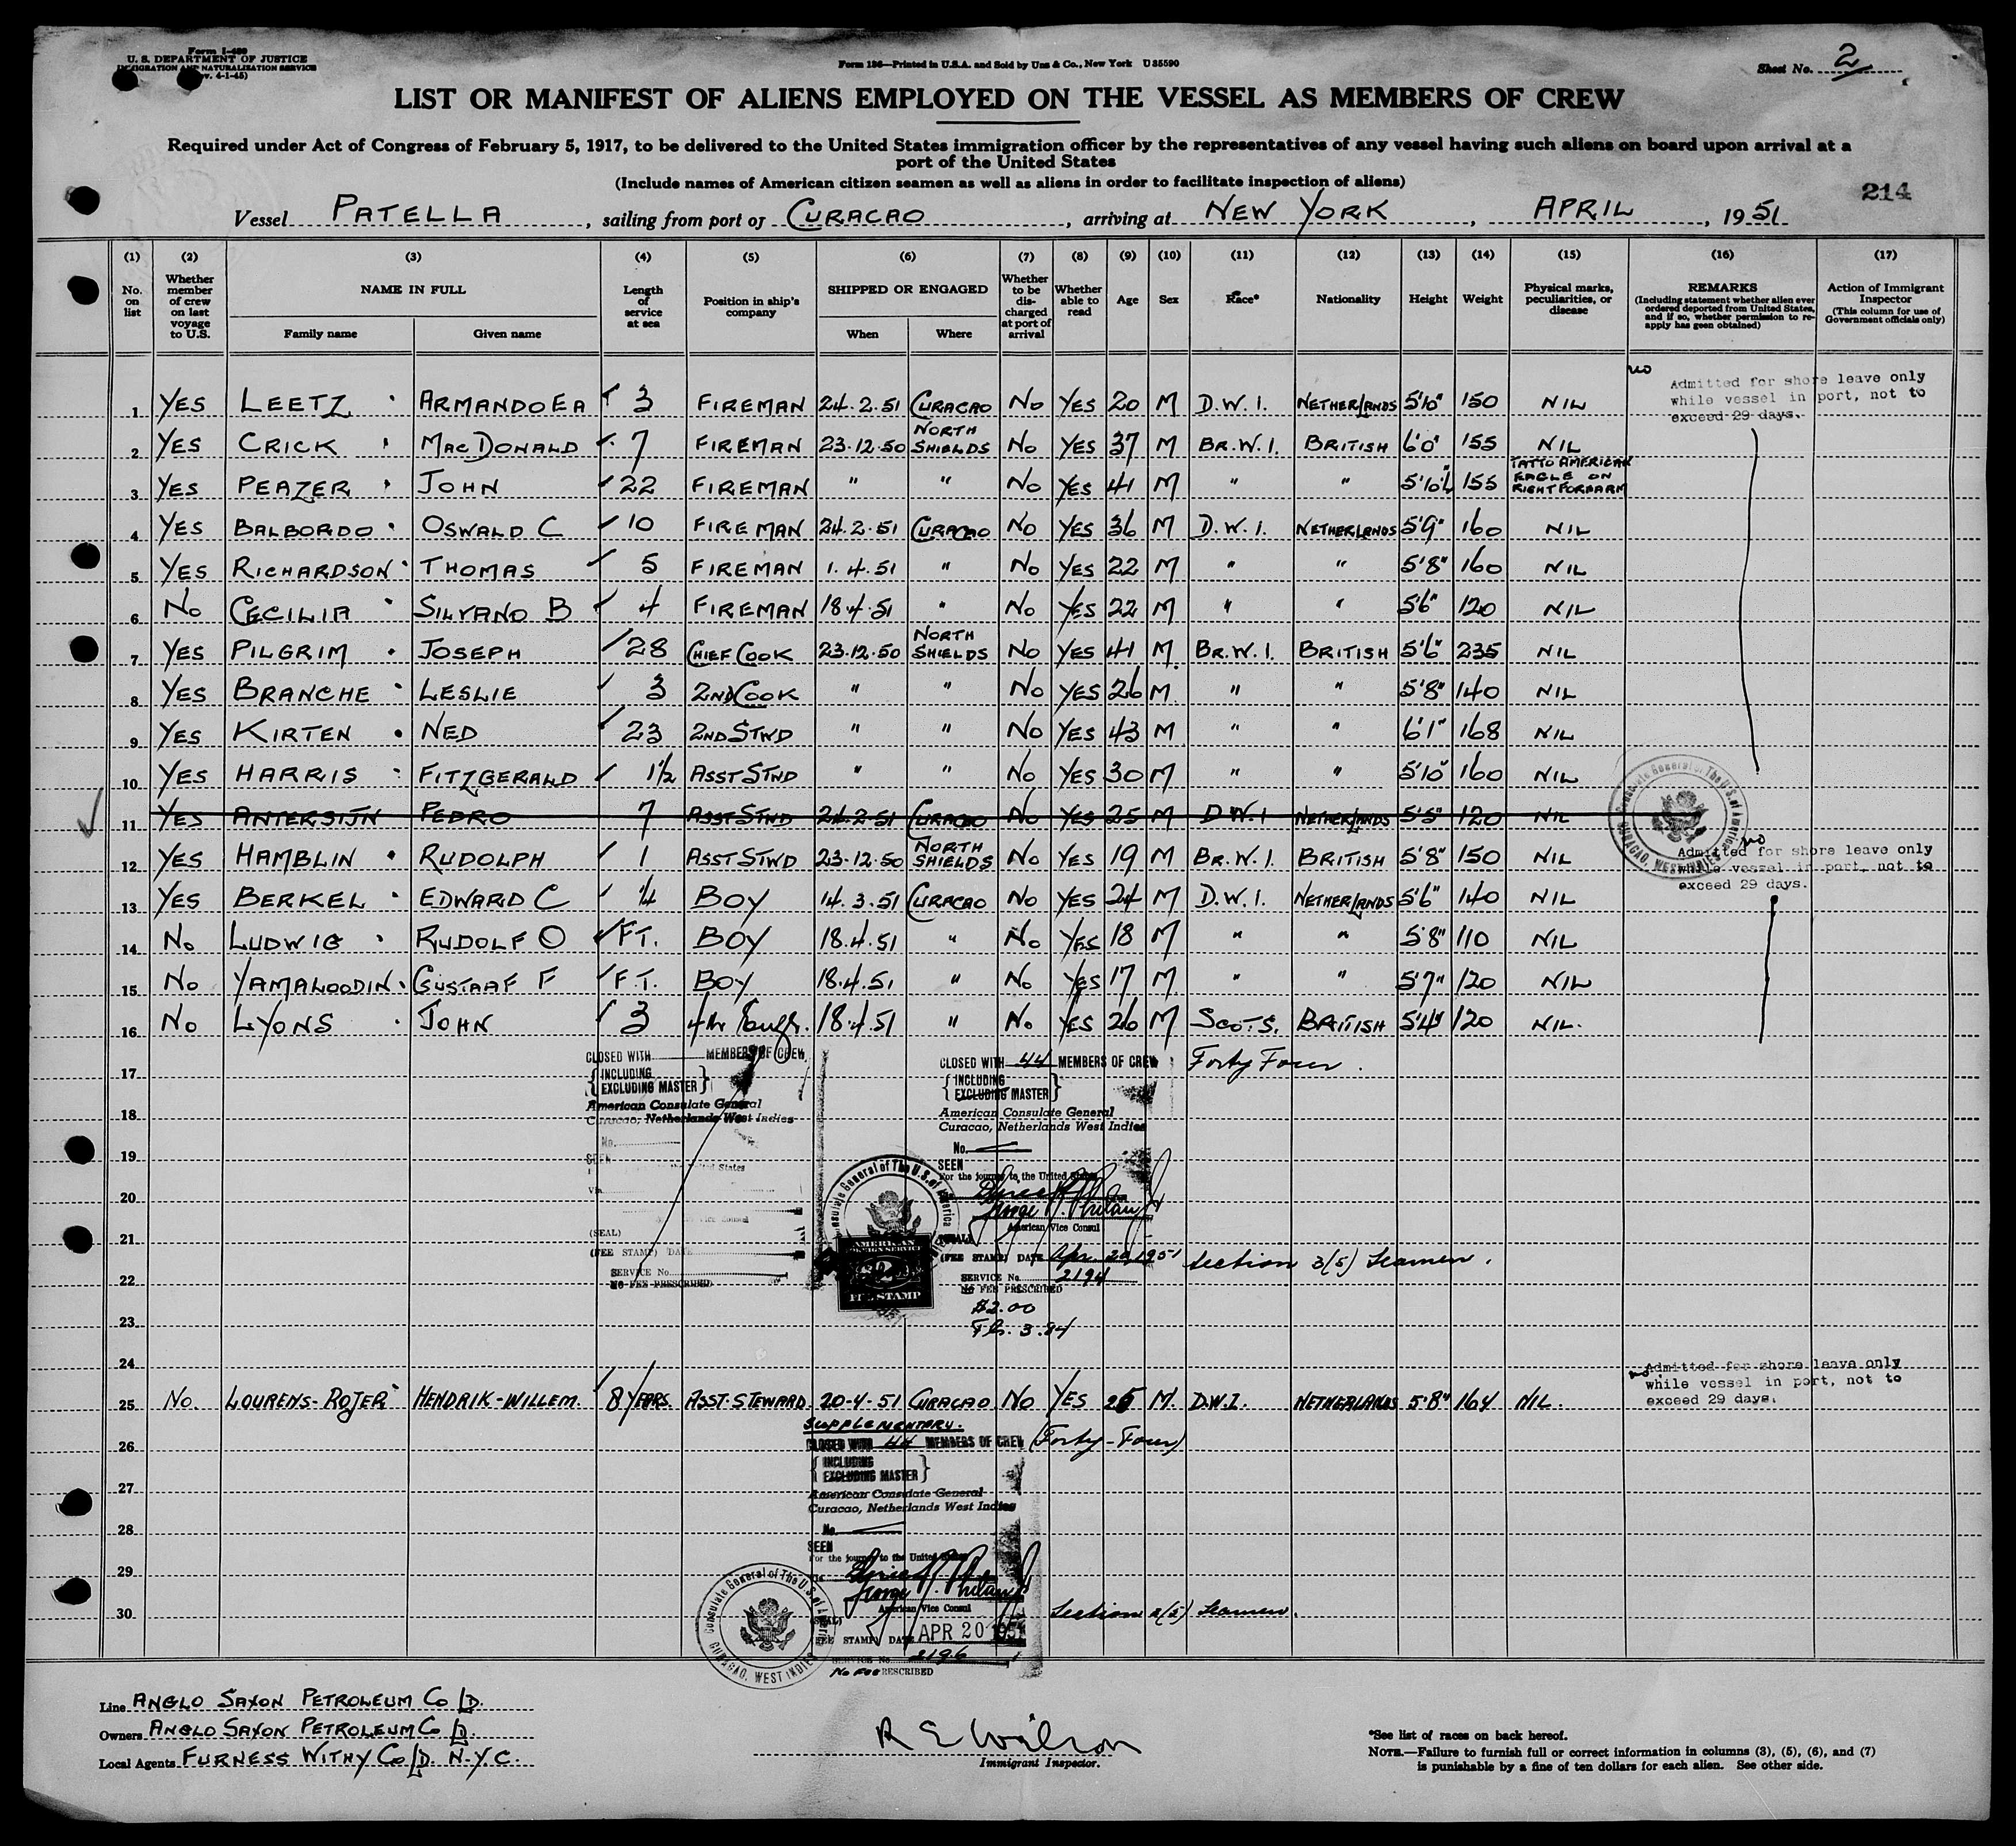 Form I-480
U. S. DEPARTMENT OF JUSTICE
IMMIGRATION AND NATURALIZATION SERVICE
(Rev. 4-1-45)
Form 136—Printed in U.S.A. and Sold by Unz & Co., New York U 35590
Sheet No. 2
LIST OR MANIFEST OF ALIENS EMPLOYED ON THE VESSEL AS MEMBERS OF CREW
Required under Act of Congress of February 5, 1917, to be delivered to the United States immigration officer by the representatives of any vessel having such aliens on board upon arrival at a
port of the United States
(Include names of American citizen seamen as well as aliens in order to facilitate inspection of aliens)
214
Vessel PATELLA, sailing from port of CURACAO, arriving at NEW YORK, APRIL, 1951
(1) (2) (3) (4) (5) (6) (7) (8) (9) (10) (11) (12) (13) (14) (15) (16) (17)
No. on list
Whether member of crew on last voyage to U.S.
NAME IN FULL
Family name Given name
Length of service at sea
Position in ship's company
SHIPPED OR ENGAGED
When Where
Whether to be discharged at port of arrival
Whether able to read
Age
Sex
Race*
Nationality
Height
Weight
Physical marks, peculiarities, or disease
REMARKS
(Including statement whether alien ever ordered deported from United States, and if so, whether permission to re-apply has geen obtained)
Action of Immigrant Inspector
(This column for use of Government officials only)
no Admitted for shore leave only
while vessel in port, not to
exceed 29 days.
1 YES LEETZ ARMANDO EA 3 FIREMAN 24.2.51 CURACAO No YES 20 M D.W.I. NETHERLANDS 5'10" 150 NIL
2 YES CRICK MACDONALD 7 FIREMAN 23.12.50 NORTH SHIELDS No YES 37 M BR.W.I. BRITISH 6'0" 155 NIL
3 YES PEAZER JOHN 22 FIREMAN " " No YES 41 M " " 5'10½ 155 TATTO AMERICAN EAGLE ON RIGHT FORARM
4 YES BALBORDO OSWALD C 10 FIREMAN 24.2.51 CURACAO No YES 36 M D.W.I. NETHERLANDS 5'9" 160 NIL
5 YES RICHARDSON THOMAS 5 FIREMAN 1.4.51 " No YES 22 M " " 5'8" 160 NIL
6 No CECILIA SILVANO B 4 FIREMAN 18.4.51 " No YES 22 M " " 5'6" 120 NIL
7 YES PILGRIM JOSEPH 28 CHIEF COOK 23.12.50 NORTH SHIELDS No YES 41 M. BR.W.I. BRITISH 5'6" 235 NIL
8 YES BRANCHE LESLIE 3 2ND COOK " " No YES 26 M. " " 5'8" 140 NIL
9 YES KIRTEN NED 23 2ND STWD " " No YES 43 M " " 6'1" 168 NIL
10 YES HARRIS FITZGERALD 1½ ASST STWD " " No YES 30 M " " 5'10" 160 NIL
11 YES ANTERSIJN PEDRO 7 ASST STWD 24.2.51 CURACAO No YES 25 M D.W.I NETHERLANDS 5'5" 120 NIL
Consulate General of The U.S. of America
CURACAO, WEST INDIES
12 YES HAMBLIN RUDOLPH 1 ASST STWD 23.12.50 NORTH SHIELDS No YES 19 M BR.W.I. BRITISH 5'8" 150 NIL
no Admitted for shore leave only
while vessel in port, not to
exceed 29 days.
13 YES BERKEL EDWARD C ¼ BOY 14.3.51 CURACAO No YES 24 M D.W.I. NETHERLANDS 5'6" 140 NIL
14 No LUDWIG RUDOLF O FT. BOY 18.4.51 " No YES 18 M " " 5'8" 110 NIL
15 No YAMALOODIN GUSTAAF F F.T. BOY 18.4.51 " No YES 17 M. " " 5'7" 120 NIL
16 No LYONS JOHN 3 4th Eng'r. 18.4.51 " No YES 26 M SCOTS. BRITISH 5'4" 120 NIL.
17
18
19
20
21
22
23
24
CLOSED WITH MEMBERS OF CREW
INCLUDING
EXCLUDING MASTER
American Consulate General
Curacao, Netherlands West Indies
No.
SEEN
(SEAL)
(FEE STAMP) DATE
SERVICE No.
NO FEE PRESCRIBED
CLOSED WITH 44 MEMBERS OF CREW Forty Four.
INCLUDING
EXCLUDING MASTER
American Consulate General
Curacao, Netherlands West Indies
No.
SEEN
For the journey to the United States
American Vice Consul
(SEAL)
(FEE STAMP) DATE Apr 20 1951 Section 3(5) Seamen.
SERVICE No. 2194
NO FEE PRESCRIBED
$2.00
Fls. 3.84
Consulate General of The U.S. of America
AMERICAN
FOREIGN SERVICE
FEE STAMP
25 No. LOURENS-ROJER HENDRIK-WILLEM. 8 YEARS. ASST. STEWARD 20-4-51 CURACAO No YES 25 M. D.W.I. NETHERLANDS 5'8" 164 NIL.
no Admitted for shore leave only
while vessel in port, not to
exceed 29 days.
SUPPLEMENTARY.
26 CLOSED WITH 44 MEMBERS OF CREW (Forty-Four)
INCLUDING
EXCLUDING MASTER
27
American Consulate General
Curacao, Netherlands West Indies
28
No.
SEEN
For the journey to the United States
29
American Vice Consul
30
Section 3(5) Seamen.
(SEAL)
(FEE STAMP) DATE APR 20 1951
SERVICE No. 2196
No FEE PRESCRIBED
Consulate General of The U.S. of America
CURACAO, WEST INDIES
Line ANGLO SAXON PETROLEUM Co LD.
Owners ANGLO SAXON PETROLEUM Co LD.
Local Agents FURNESS WITHY Co LD. N.Y.C.
R E Wilson
Immigrant Inspector.
*See list of races on back hereof.
NOTE.—Failure to furnish full or correct information in columns (3), (5), (6), and (7)
is punishable by a fine of ten dollars for each alien. See other side.